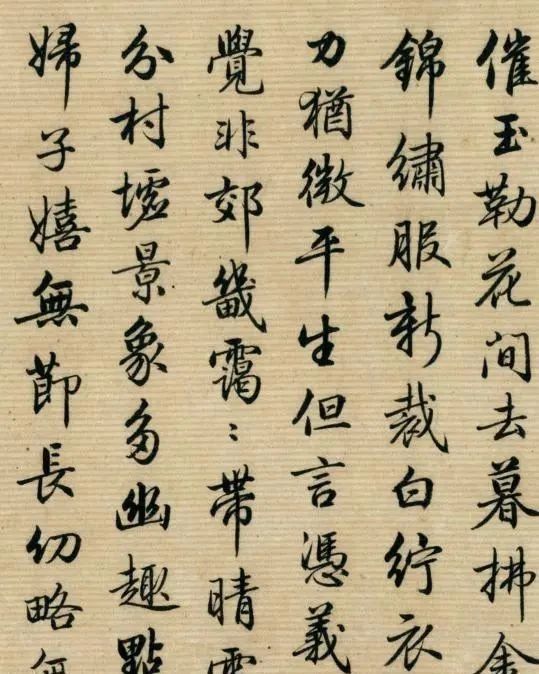 催玉勒花间去暮拂金
錦繡服新裁白紵衣
力猶微平生但言憑義
覺非郊畿靄〻帶晴雲
分村墟景象多幽趣點
婦子嬉無節長幼略無